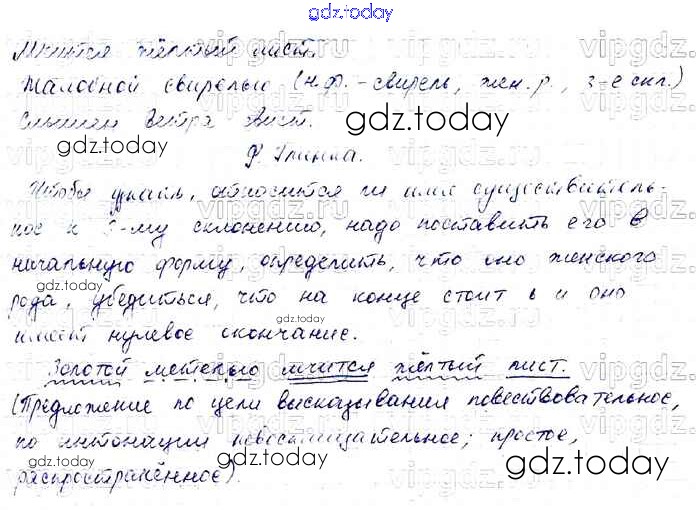 gdz.today
Мчится жёлтый лист.
Жалобной свирелью (н.ф. - свирель, жен. р., 3-е скл.)
Слышен ветра свист.
gdz.today
gdz.today
Ф. Глинка.
Чтобы узнать, относится ли имя существитель-
ное к 3-му склонению, надо поставить его в
начальную форму, определить, что оно женского
рода, убедиться, что на конце стоит ь и оно
gdz.today
gdz.today
имеет нулевое окончание.
Золотой метелью мчится жёлтый лист.
gdz.today
(Предложение по цели высказывания повествовательное,
по интонации невосклицательное; простое,
gdz.today
gdz.today
распространённое).